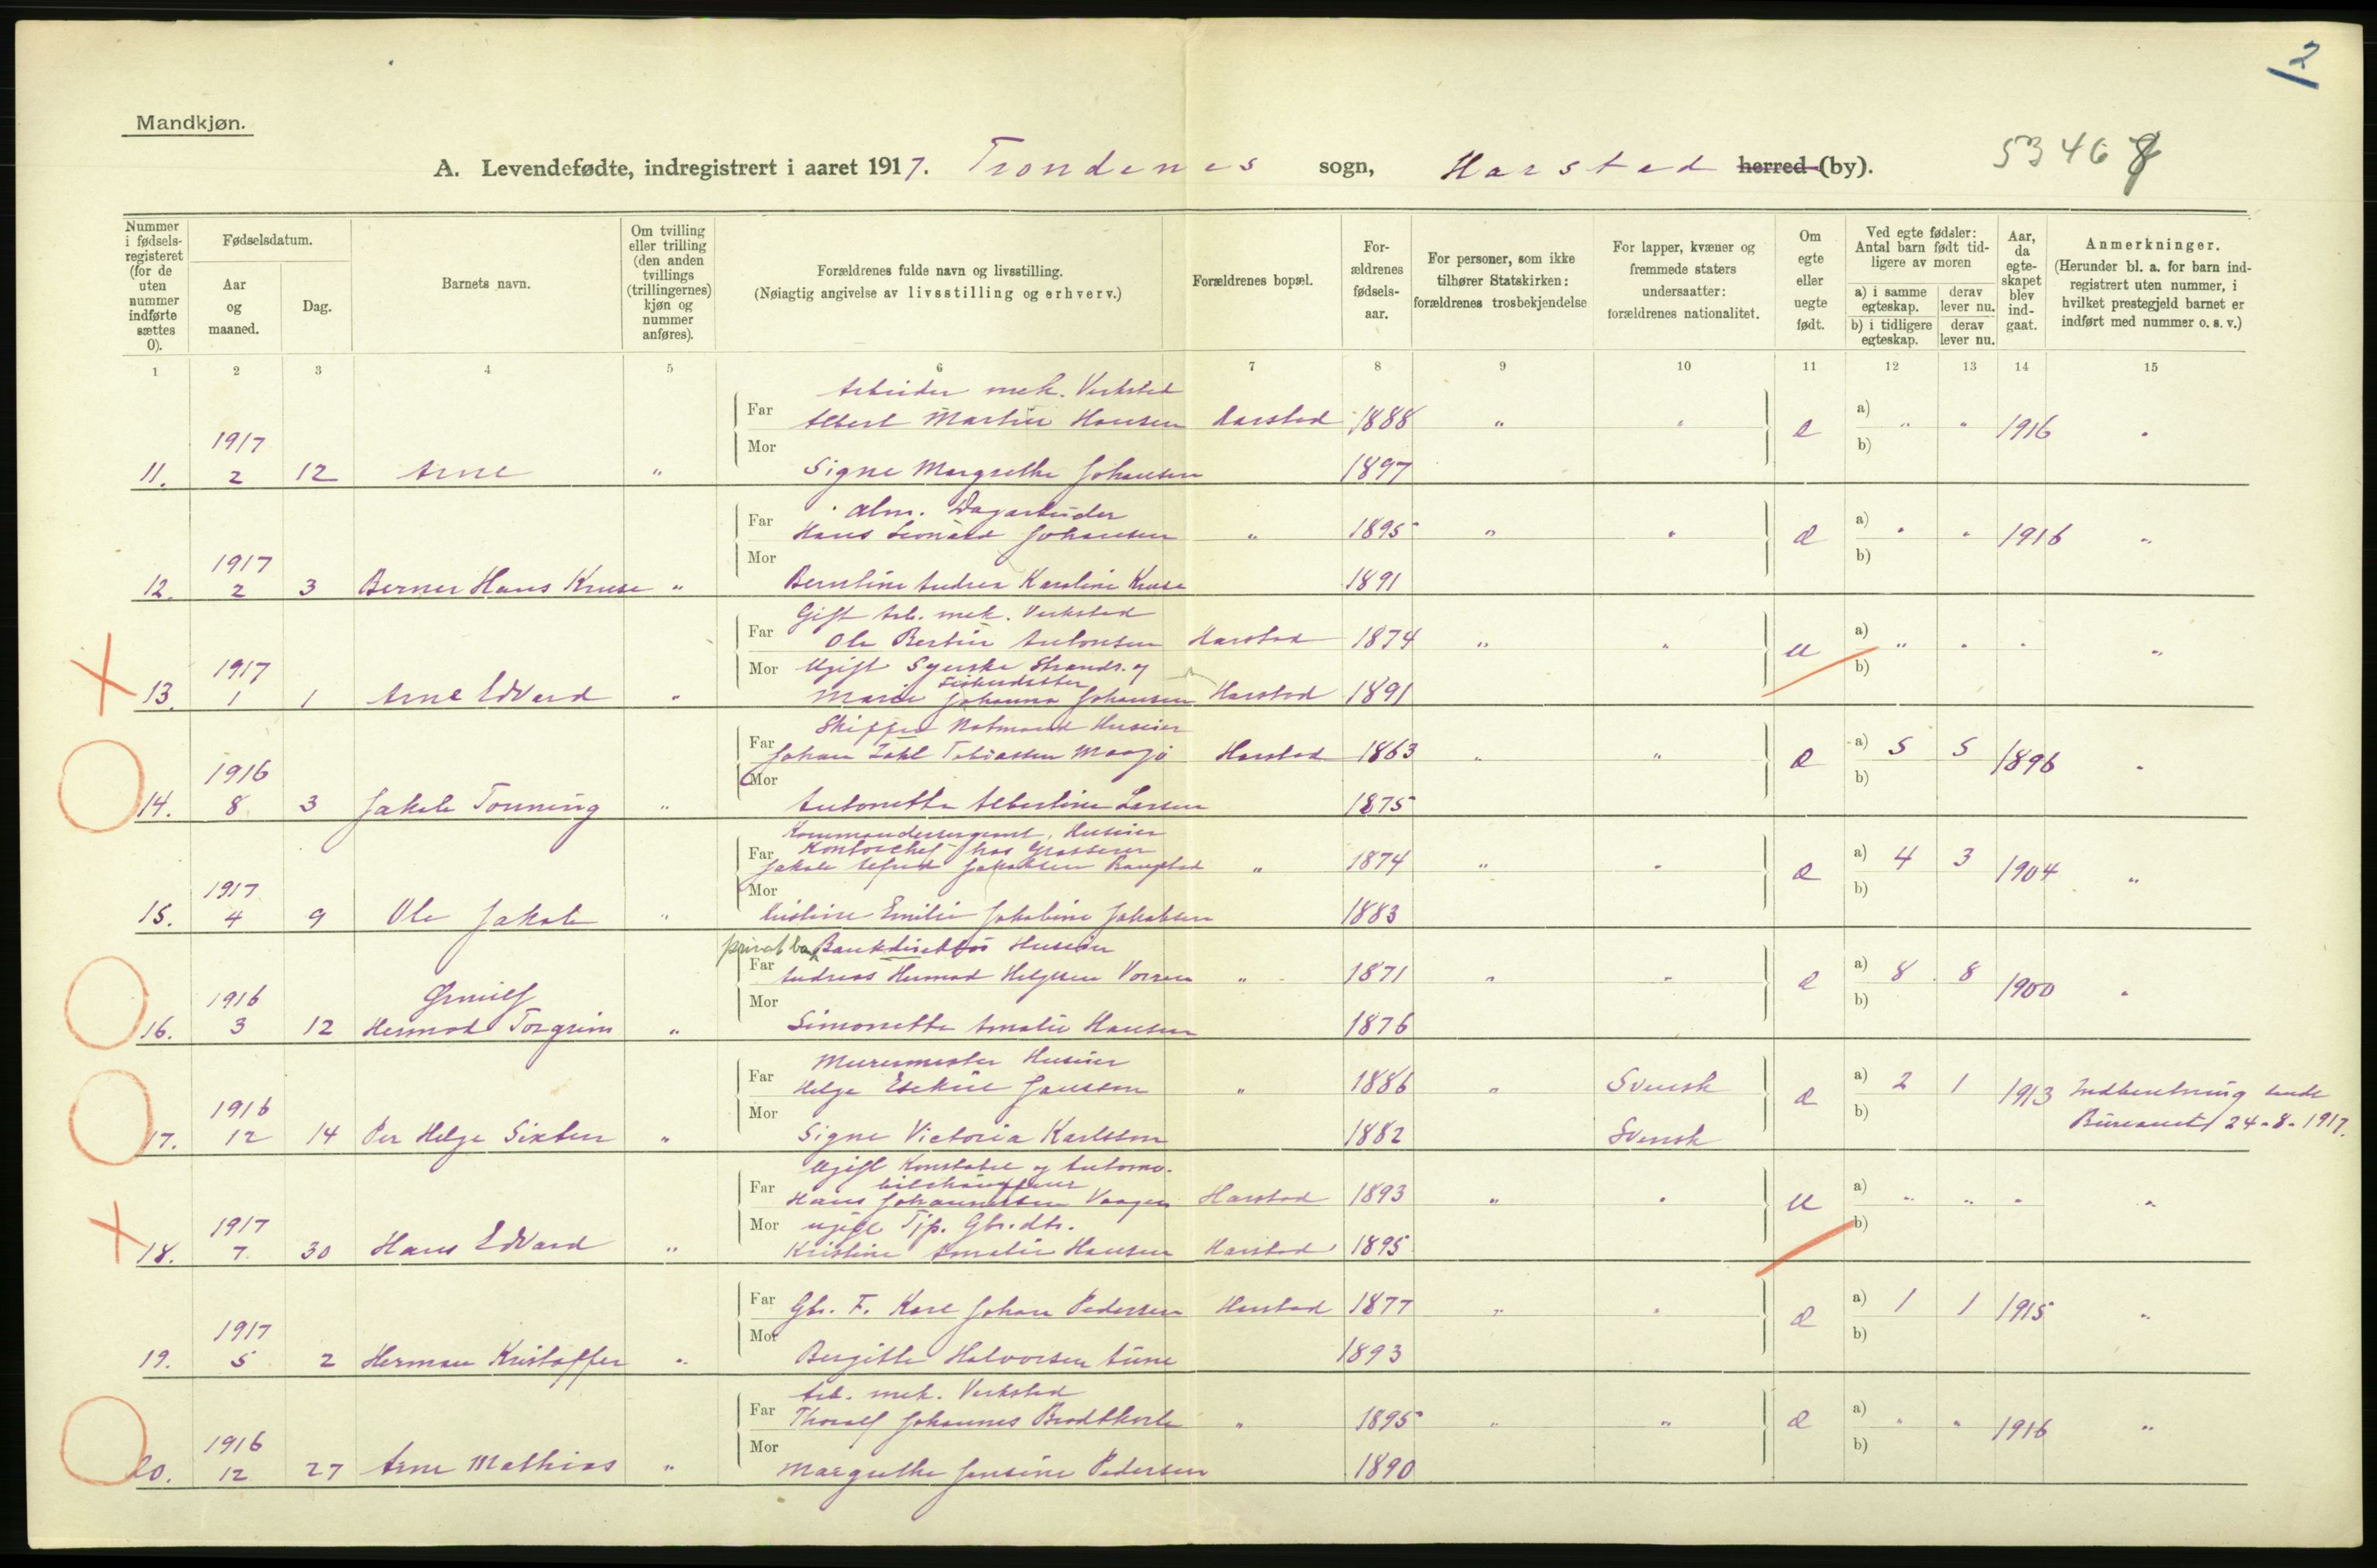 2
Mandkjøn.
A. Levendefødte, indregistrert i aaret 1917. Trondenes sogn, Harstad herred (by).
5346 8
Nummer i fødsels-registeret (for de uten nummer indførte sættes 0).
Fødselsdatum.
Aar og maaned.
Dag.
Barnets navn.
Om tvilling eller trilling (den anden tvillings (trillingernes) kjøn og nummer anføres).
Forældrenes fulde navn og livsstilling.
(Nøiagtig angivelse av livsstilling og erhverv.)
Forældrenes bopæl.
For-ældrenes fødsels-aar.
For personer, som ikke tilhører Statskirken: forældrenes trosbekjendelse
For lapper, kvæner og fremmede staters undersaatter: forældrenes nationalitet.
Om egte eller uegte født.
Ved egte fødsler: Antal barn født tid-ligere av moren
a) i samme egteskap.
derav lever nu.
b) i tidligere egteskap.
derav lever nu.
Aar, da egte-skapet blev ind-gaat.
Anmerkninger.
(Herunder bl. a. for barn ind-registrert uten nummer, i hvilket prestegjeld barnet er indført med nummer o. s. v.)
1 2 3 4 5 6 7 8 9 10 11 12 13 14 15
Arbeider mek. Verksted
Far Albert Martin Hansen Harstad 1888 " " e a) " " 1916 "
1917
Mor b)
11. 2 12 Arne " Signe Margrethe Johansen 1897
Alm. Dagarbeider
Far Hans Leonard Johansen " 1895 " " e a) " " 1916 "
1917
Mor b)
12. 2 3 Berner Hans Kruse " Berntine Andrea Karoline Kruse 1891
Gift Arb. mek. Verksted
Far Ole Bertin Antonsen Harstad 1874 " " u a) " " " "
1917
Mor Ugift Syerske Strands. og b)
Fiskerdatter
13. 1 1 Arne Edvard " Marie Johanna Johansen Harstad 1891
Skipper Notmand Huseier
Far Johan Zahl Tobiassen Maasjø Harstad 1863 " " e a) 5 5 1896 "
1916
Mor b)
14. 8 3 Jakob Tonning " Antonette Albertine Larsen 1875
Kommandersergeant, Huseier
Kontorchef hos Grosserer
Far Jakob Alfred Jakobsen " 1874 " " e a) 4 3 1904 "
1917
Mor b)
15. 4 9 Ole Jakob " Kristine Emilie Jakobine Jakobsen 1883
privat ba Bankdirektør Huseier
Far Andreas Hermod Helgesen Vorren " 1871 " " e a) 8 8 1900 "
1916
Mor b)
16. 3 12 Hermod Torgrim " Simonette Amalie Hansen 1876
Murermester Huseier
Far Helge Esekiel Jansson " 1886 " Svensk e a) 2 1 1913 Indberetning sendt
1916
Mor b) Bureauet 24-8-1917.
17. 12 14 Per Helge Sixten " Signe Victoria Karlsson 1882 Svensk
Ugift Konstabel og Automo-
bilchauffeur
Far Hans Johannessen Vaagen Harstad 1893 " " u a) " " " "
1917
Mor ugift Tjp. Gbr.dtr. b)
18. 7 30 Hans Edvard " Kristine Amalie Hansen Harstad 1895
Far Gbr. F. Karl Johan Pedersen Harstad 1877 " " e a) 1 1 1915 "
1917
Mor b)
19. 5 2 Herman Kristoffer " Bergitte Halvorsen Aune 1893
Arb. mek. Verksted
Far Thoralf Johannes Brodtkorb " 1895 " " e a) " " 1916 "
1916
Mor b)
20. 12 27 Arne Mathias " Margrethe Jensine Pedersen 1890